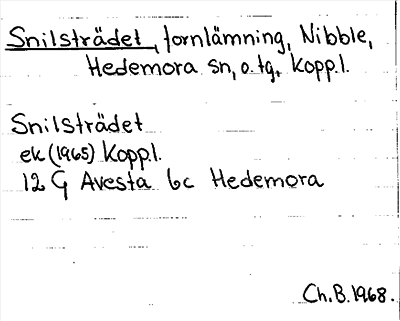 Snilsträdet, fornlämning, Nibble,
Hedemora sn, o. tg. Koppl.
Snilsträdet
ek (1965) Koppl.
12 G Avesta 6c Hedemora
Ch. B. 1968.